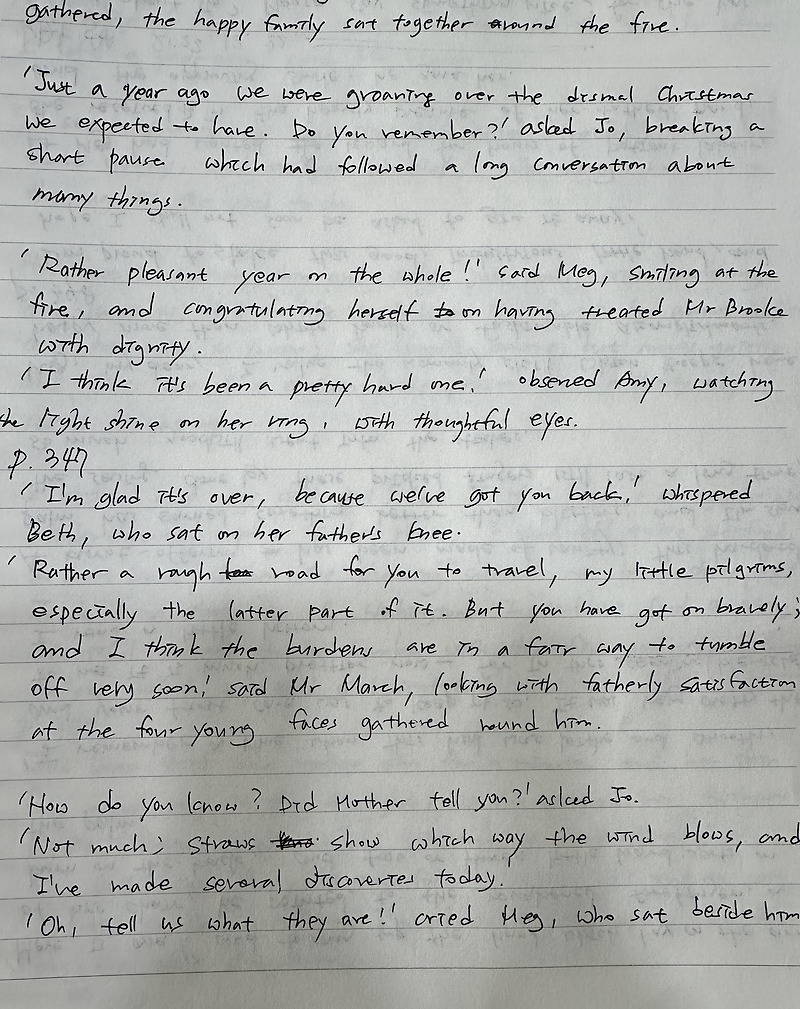 gathered, the happy family sat together around the fire.
'Just a year ago we were groaning over the dismal Christmas
we expected to have. Do you remember?' asked Jo, breaking a
short pause which had followed a long conversation about
many things.
'Rather pleasant year on the whole!' said Meg, smiling at the
fire, and congratulating herself on having treated Mr Brooke
with dignity.
'I think it's been a pretty hard one,' observed Amy, watching
the light shine on her ring, with thoughtful eyes.
p. 347
'I'm glad it's over, because we've got you back,' whispered
Beth, who sat on her father's knee.
'Rather a rough road for you to travel, my little pilgrims,
especially the latter part of it. But you have got on bravely;
and I think the burdens are in a fair way to tumble
off very soon,' said Mr March, looking with fatherly satisfaction
at the four young faces gathered round him.
'How do you know? Did Mother tell you?' asked Jo.
'Not much; straws show which way the wind blows, and
I've made several discoveries today.'
'Oh, tell us what they are!' cried Meg, who sat beside him